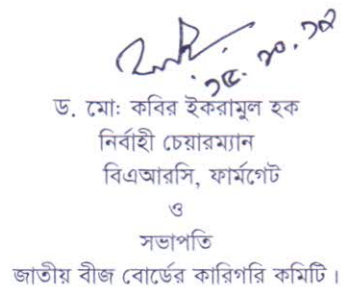 ১৫.১০.১৮
ড. মো: কবির ইকরামুল হক
নির্বাহী চেয়ারম্যান
বিএআরসি, ফার্মগেট
ও
সভাপতি
জাতীয় বীজ বোর্ডের কারিগরি কমিটি।